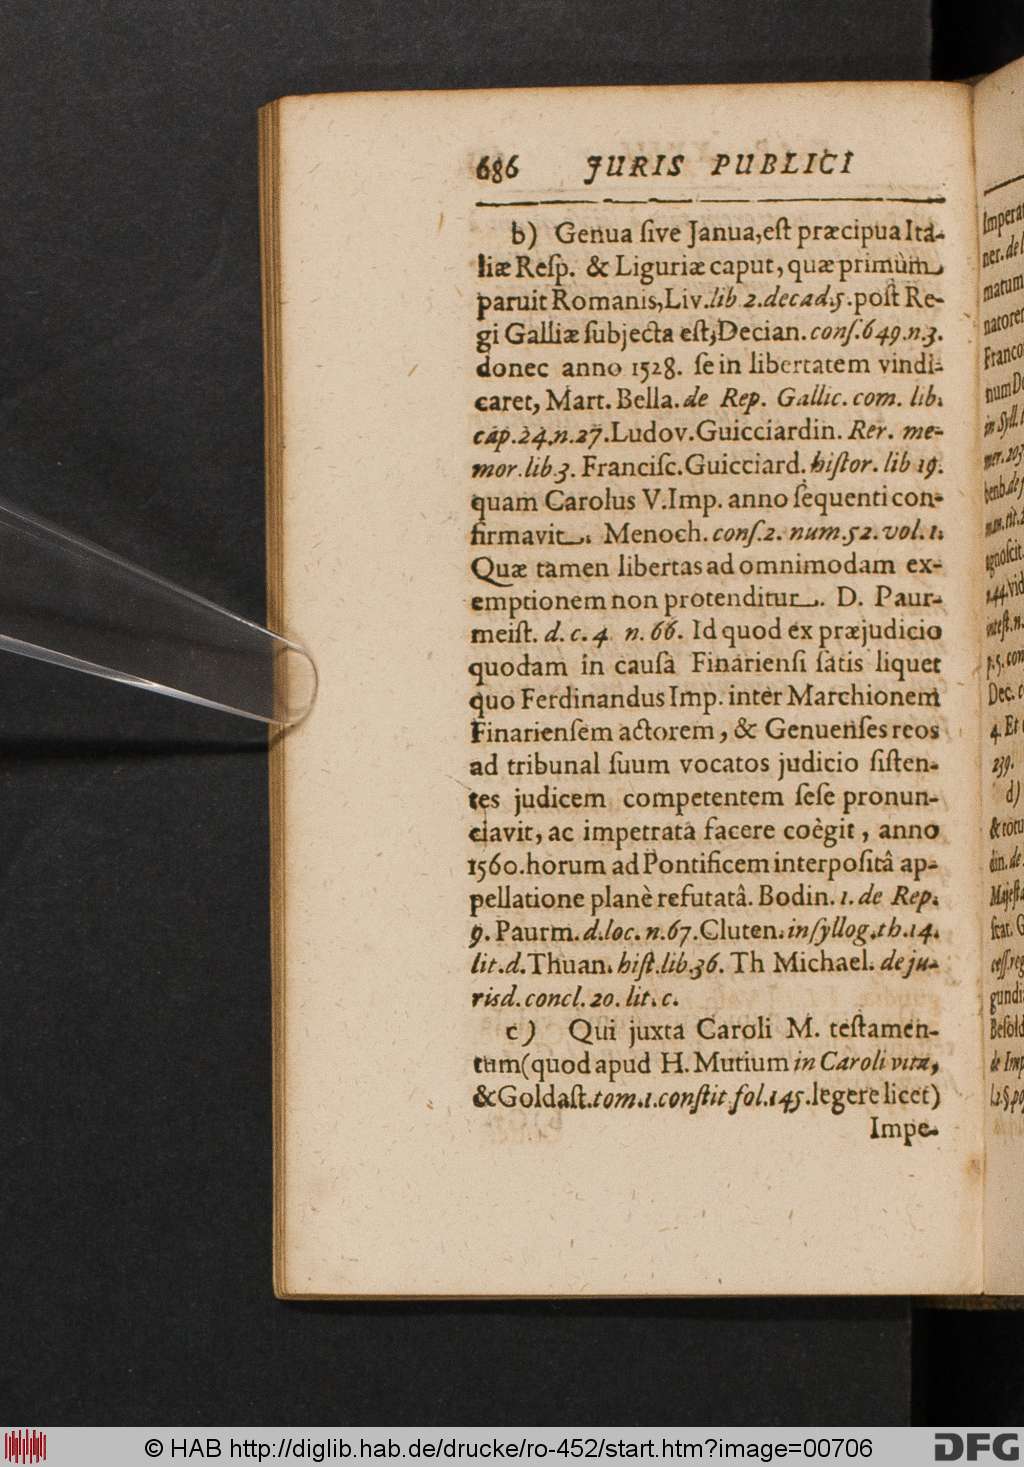 686 JURIS PUBLICI
b) Genua ſive Janua, eſt præcipua Ita-
liæ Reſp. & Liguriæ caput, quæ primùm
paruit Romanis, Liv. lib 2. decad. 5. poſt Re-
gi Galliæ ſubjecta eſt, Decian. conſ. 649. n. 3.
donec anno 1528. ſe in libertatem vindi-
caret, Mart. Bella. de Rep. Gallic. com. lib.
cap. 24. n. 27. Ludov. Guicciardin. Rer. me-
mor. lib 3. Franciſc. Guicciard. hiſtor. lib 19.
quam Carolus V. Imp. anno ſequenti con-
firmavit. Menoch. conſ. 2. num. 52. vol. 1.
Quæ tamen libertas ad omnimodam ex-
emptionem non protenditur. D. Paur-
meiſt. d. c. 4. n. 66. Id quod ex præjudicio
quodam in cauſa Finarienſi ſatis liquet
quo Ferdinandus Imp. inter Marchionem
Finarienſem actorem, & Genuenſes reos
ad tribunal ſuum vocatos judicio ſiſten-
tes judicem competentem ſeſe pronun-
ciavit, ac impetrata facere coègit, anno
1560. horum ad Pontificem interpoſitâ ap-
pellatione planè refutatâ. Bodin. 1. de Rep.
9. Paurm. d. loc. n. 67. Cluten. in ſyllog. th. 14.
lit. d. Thuan. hiſt. lib. 36. Th Michael. de ju-
risd. concl. 20. lit. c.
c) Qui juxta Caroli M. teſtamen-
tum (quod apud H. Mutium in Caroli vita,
& Goldaſt. tom. 1. conſtit fol. 145. legere licet)
Impe-
© HAB http://diglib.hab.de/drucke/ro-452/start.htm?image=00706
DFG